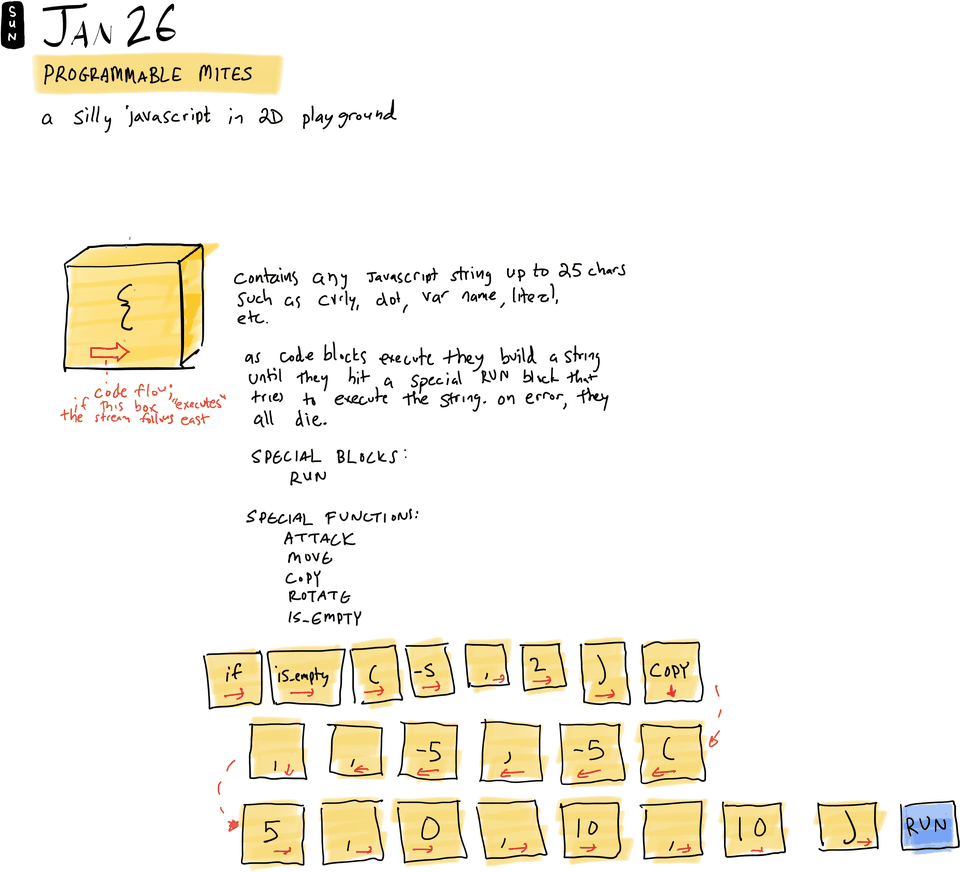 SUN
JAN 26
PROGRAMMABLE MITES
a silly javascript in 2D playground
{
contains any Javascript string up to 25 chars
such as curly, dot, var name, literal,
etc.
as code blocks execute they build a string
until they hit a special RUN block that
tries to execute the string. on error, they
all die.
code flow;
if this box "executes"
the stream follows east
SPECIAL BLOCKS:
RUN
SPECIAL FUNCTIONS:
ATTACK
MOVE
COPY
ROTATE
IS_EMPTY
if is_empty ( -5 , 2 ) COPY
, , -5 , -5 (
5 , 0 , 10 , 10 ) RUN